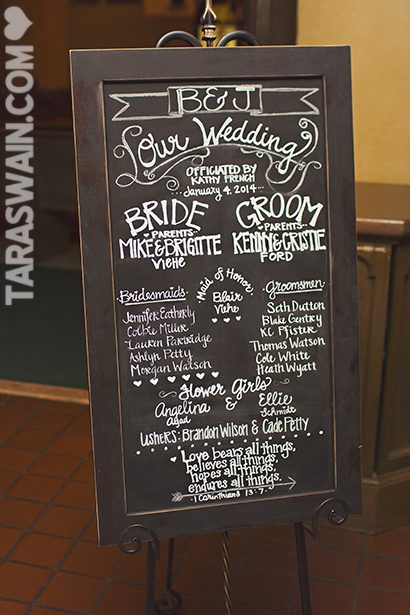 TARASWAIN.COM
B&J
Our Wedding
OFFICIATED BY
KATHY FRENCH
January 4, 2014
BRIDE
PARENTS
MIKE&BRIGITTE
Viehe
GROOM
PARENTS
KENNY&CRISTIE
FORD
Maid of Honor
Blair
Viehe
Bridesmaids
Jennifer Eatherly
Colbie Miller
Lauren Partridge
Ashlyn Petty
Morgan Watson
Groomsmen
Seth Dutton
Blake Gentry
KC Pfister
Thomas Watson
Cole White
Heath Wyatt
Flower Girls
Angelina
&
Ellie
Schmidt
USHERS: Brandon Wilson & Cade Petty
Love bears all things,
believes all things,
hopes all things,
endures all things.
1 Corinthians 13:7